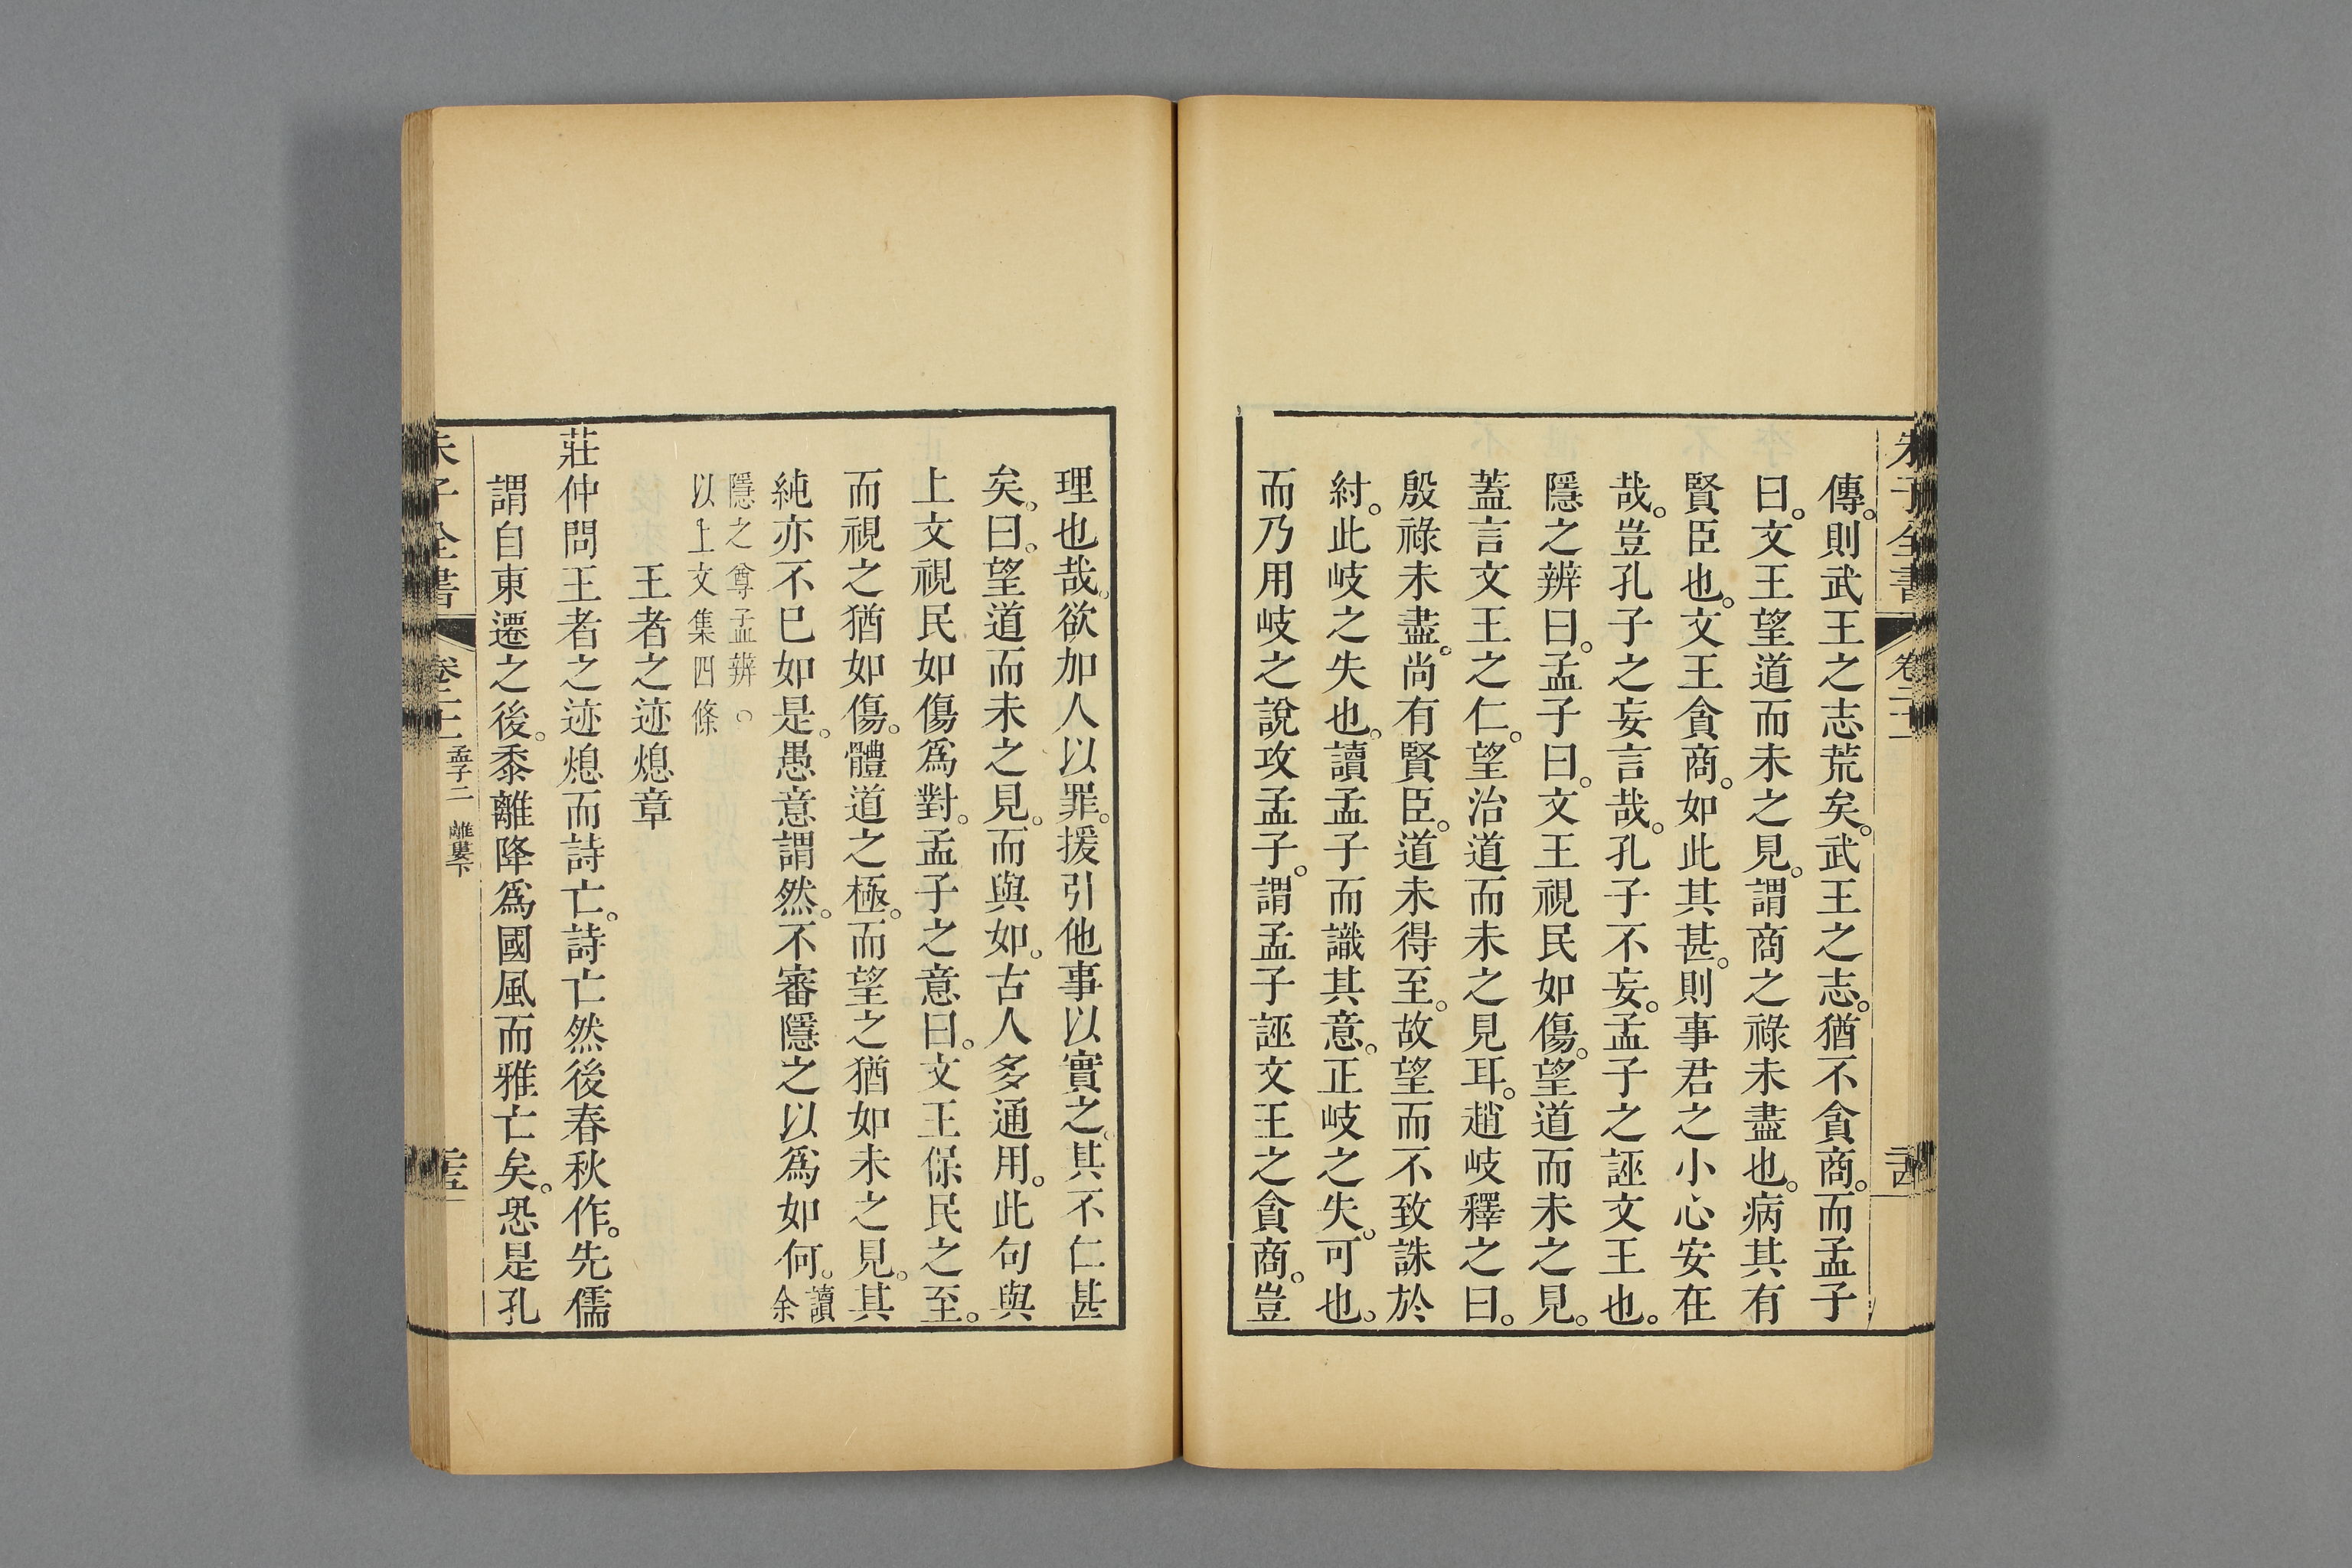 朱子全書
卷二十
傳。則武王之志荒矣。武王之志。猶不貪商。而孟子
曰。文王望道而未之見。謂商之祿未盡也。病其有
賢臣也。文王貪商。如此其甚。則事君之小心安在
哉。豈孔子之妄言哉。孔子不妄。孟子之誣文王也。
隱之辨曰。孟子曰。文王視民如傷。望道而未之見。
蓋言文王之仁。望治道而未之見耳。趙岐釋之曰。
殷祿未盡。尚有賢臣。道未得至。故望而不致誅於
紂。此岐之失也。讀孟子而識其意。正岐之失。可也。
而乃用岐之說攻孟子。謂孟子誣文王之貪商。豈
理也哉。欲加人以罪。援引他事以實之。其不仁甚
矣。曰。望道而未之見。而與如。古人多通用。此句與
上文視民如傷爲對。孟子之意曰。文王保民之至。
而視之猶如傷。體道之極。而望之猶如未之見。其
純亦不已如是。愚意謂然。不審隱之以爲如何。讀余
隱之尊孟辨。
以上文集四條
王者之迹熄章
莊仲問王者之迹熄而詩亡。詩亡然後春秋作。先儒
謂自東遷之後。黍離降爲國風而雅亡矣。恐是孔
朱子全書
卷二十
孟子二
離婁下